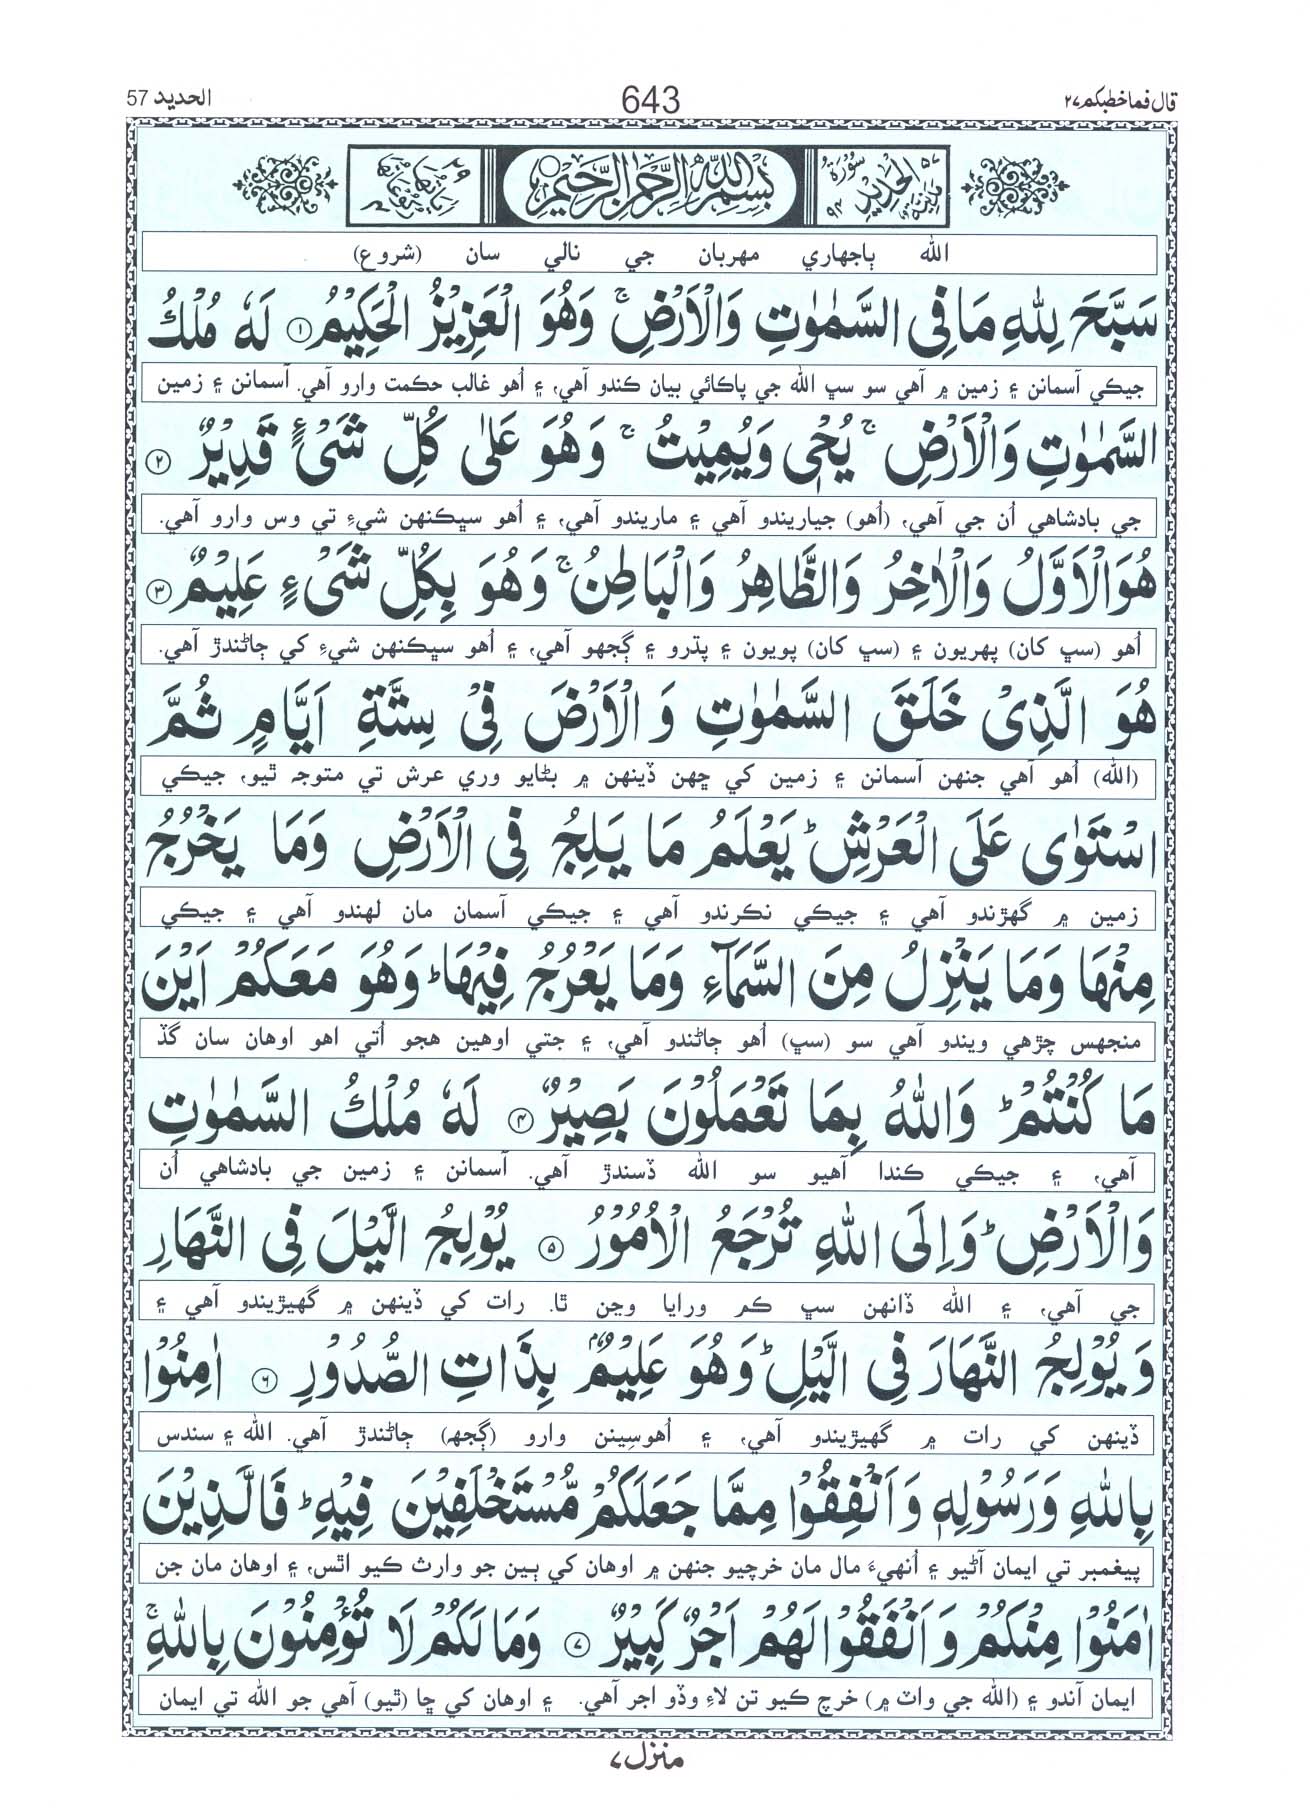 قال فما خطبكم ٢٧
643
الحديد 57
٥٧ سُوْرَةُ الْحَدِيْدِ مَدَنِيَّةٌ ٩٤
بِسْمِ اللّٰهِ الرَّحْمٰنِ الرَّحِيْمِ
الله ٻاجهاري مهربان جي نالي سان (شروع)
سَبَّحَ لِلّٰهِ مَا فِى السَّمٰوٰتِ وَالْاَرْضِ ۚ وَهُوَ الْعَزِيْزُ الْحَكِيْمُ ۝١ لَهٗ مُلْكُ
جيڪي آسمانن ۽ زمين ۾ آهي سو سڀ الله جي پاڪائي بيان ڪندو آهي، ۽ اُهو غالب حڪمت وارو آهي. آسمانن ۽ زمين
السَّمٰوٰتِ وَالْاَرْضِ ۚ يُحْىٖ وَيُمِيْتُ ۚ وَهُوَ عَلٰى كُلِّ شَىْءٍ قَدِيْرٌ ۝٢
جي بادشاهي اُن جي آهي، (اُهو) جياريندو آهي ۽ ماريندو آهي، ۽ اُهو سڀڪنهن شيءِ تي وس وارو آهي.
هُوَ الْاَوَّلُ وَالْاٰخِرُ وَالظَّاهِرُ وَالْبَاطِنُ ۚ وَهُوَ بِكُلِّ شَىْءٍ عَلِيْمٌ ۝٣
اُهو (سڀ کان) پهريون ۽ (سڀ کان) پويون ۽ پڌرو ۽ ڳجهو آهي، ۽ اُهو سڀڪنهن شيءِ کي ڄاڻندڙ آهي.
هُوَ الَّذِىْ خَلَقَ السَّمٰوٰتِ وَ الْاَرْضَ فِىْ سِتَّةِ اَيَّامٍ ثُمَّ
(الله) اُهو آهي جنهن آسمانن ۽ زمين کي ڇهن ڏينهن ۾ بڻايو وري عرش تي متوجہ ٿيو، جيڪي
اسْتَوٰى عَلَى الْعَرْشِ ؕ يَعْلَمُ مَا يَلِجُ فِى الْاَرْضِ وَمَا يَخْرُجُ
زمين ۾ گهڙندو آهي ۽ جيڪي نڪرندو آهي ۽ جيڪي آسمان مان لهندو آهي ۽ جيڪي
مِنْهَا وَمَا يَنْزِلُ مِنَ السَّمَآءِ وَمَا يَعْرُجُ فِيْهَا ؕ وَهُوَ مَعَكُمْ اَيْنَ
منجهس چڙهي ويندو آهي سو (سڀ) اُهو ڄاڻندو آهي، ۽ جتي اوهين هجو اُتي اهو اوهان سان گڏ
مَا كُنْتُمْ ؕ وَاللّٰهُ بِمَا تَعْمَلُوْنَ بَصِيْرٌ ۝٤ لَهٗ مُلْكُ السَّمٰوٰتِ
آهي، ۽ جيڪي ڪندا آهيو سو الله ڏسندڙ آهي. آسمانن ۽ زمين جي بادشاهي اُن
وَالْاَرْضِ ؕ وَاِلَى اللّٰهِ تُرْجَعُ الْاُمُوْرُ ۝٥ يُوْلِجُ الَّيْلَ فِى النَّهَارِ
جي آهي، ۽ الله ڏانهن سڀ ڪم ورايا وڃن ٿا. رات کي ڏينهن ۾ گهيڙيندو آهي ۽
وَ يُوْلِجُ النَّهَارَ فِى الَّيْلِ ؕ وَهُوَ عَلِيْمٌۢ بِذَاتِ الصُّدُوْرِ ۝٦ اٰمِنُوْا
ڏينهن کي رات ۾ گهيڙيندو آهي، ۽ اُهو سِينن وارو (ڳجهہ) ڄاڻندڙ آهي. الله ۽ سندس
بِاللّٰهِ وَرَسُوْلِهٖ وَاَنْفِقُوْا مِمَّا جَعَلَكُمْ مُّسْتَخْلَفِيْنَ فِيْهِ ؕ فَالَّذِيْنَ
پيغمبر تي ايمان آڻيو ۽ اُنهيءَ مال مان خرچيو جنهن ۾ اوهان کي ٻين جو وارث ڪيو اٿس، ۽ اوهان مان جن
اٰمَنُوْا مِنْكُمْ وَاَنْفَقُوْا لَهُمْ اَجْرٌ كَبِيْرٌ ۝٧ وَمَا لَكُمْ لَا تُؤْمِنُوْنَ بِاللّٰهِ ۚ
ايمان آندو ۽ (الله جي واٽ ۾) خرچ ڪيو تن لاءِ وڏو اجر آهي. ۽ اوهان کي ڇا (ٿيو) آهي جو الله تي ايمان
منزل ٧